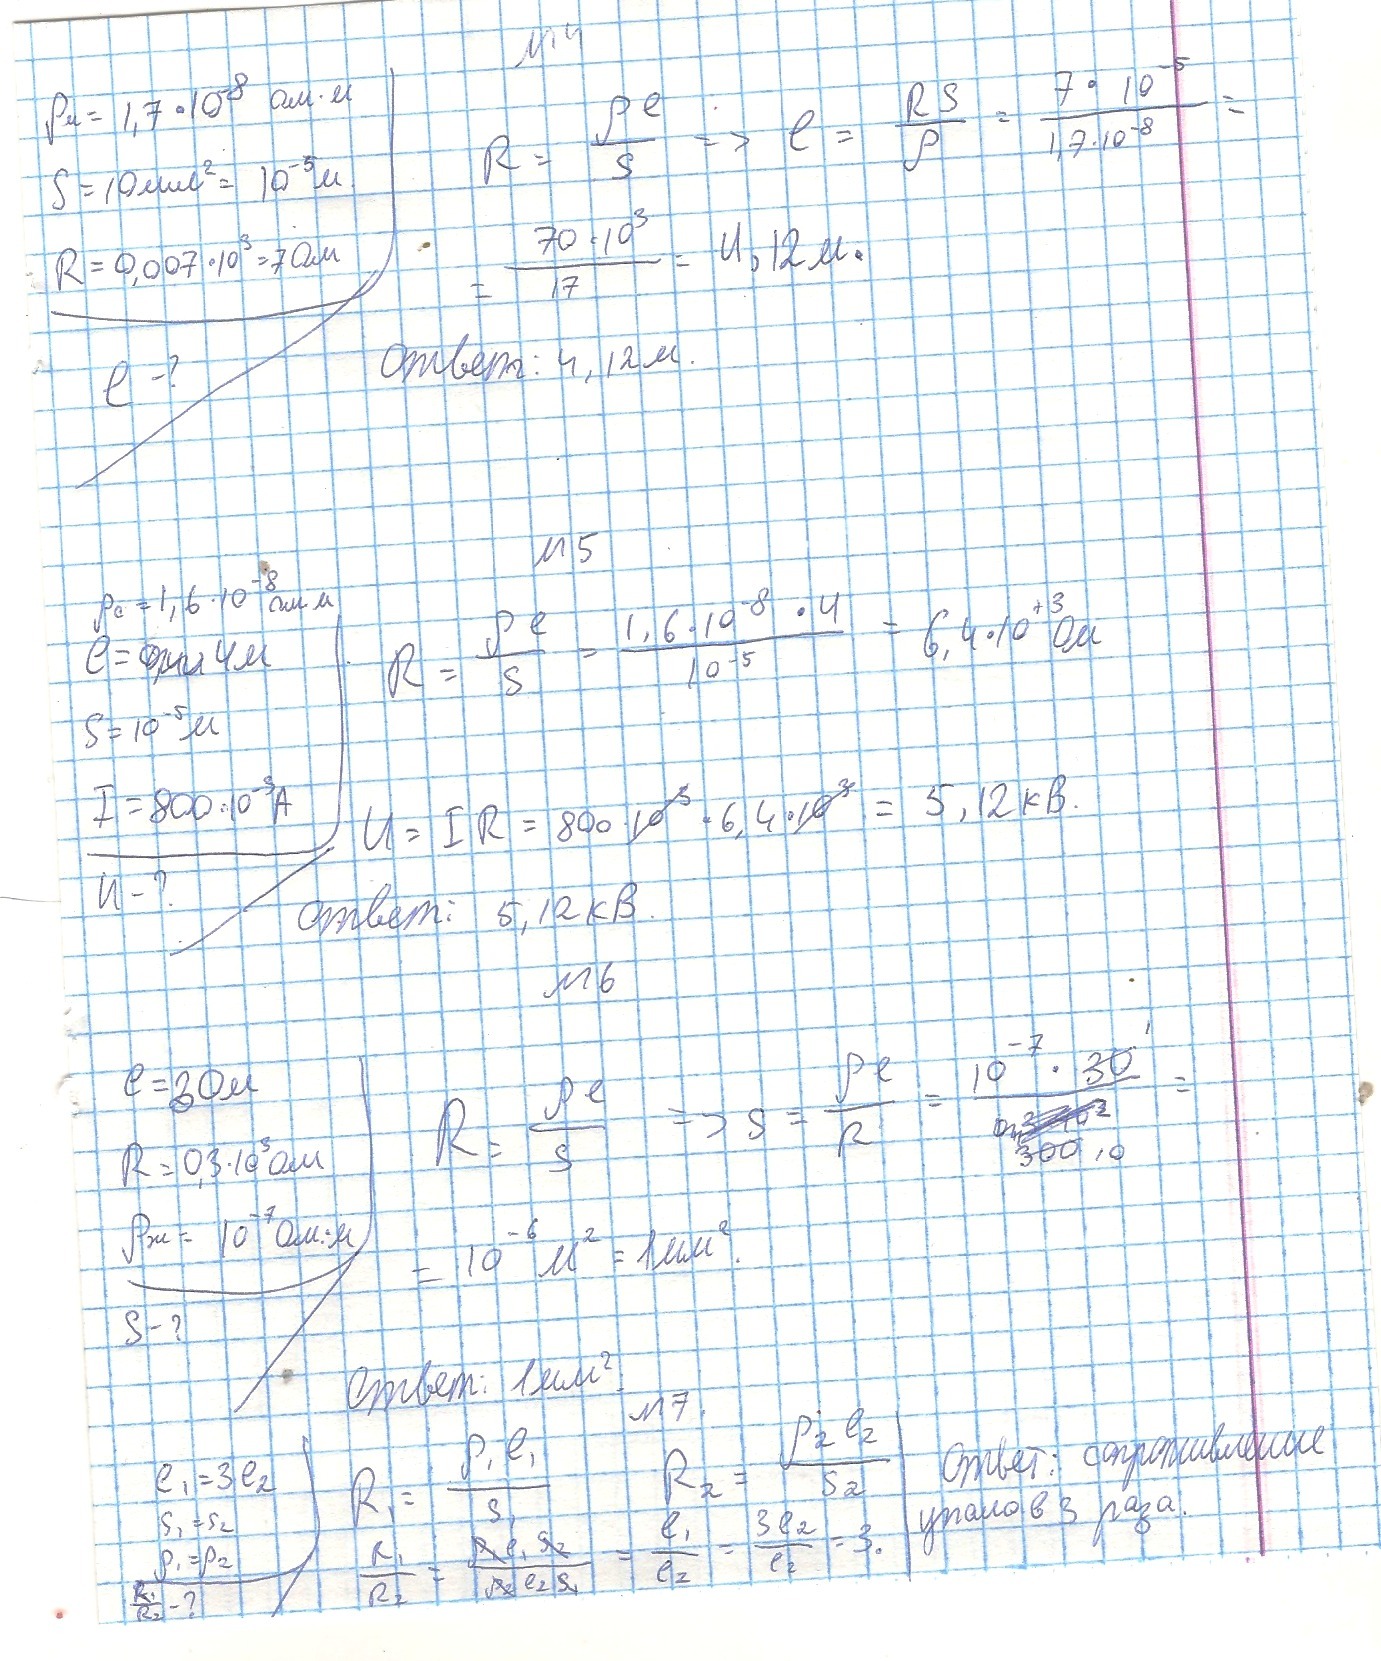 №4
ρм = 1,7·10⁻⁸ Ом·м
S = 10мм² = 10⁻⁵м
R = 0,007·10³ = 7Ом
l -?
R = ρl/S => l = RS/ρ = 7·10⁻⁵/1,7·10⁻⁸ =
= 70·10³/17 = 4,12м.
Ответ: 4,12м.
№5
ρс = 1,6·10⁻⁸ Ом·м
l = 4м
S = 10⁻⁵м
I = 800·10⁻³А
U - ?
R = ρl/S = 1,6·10⁻⁸·4/10⁻⁵ = 6,4·10⁺³Ом
U = IR = 800·10⁻³·6,4·10³ = 5,12кВ.
Ответ: 5,12кВ.
№6
l = 30м
R = 0,3·10³Ом
ρж = 10⁻⁷Ом·м
S - ?
R = ρl/S => S = ρl/R = 10⁻⁷·30/300 10 =
= 10⁻⁶м² = 1мм².
Ответ: 1мм².
№7.
l₁ = 3l₂
S₁ = S₂
ρ₁ = ρ₂
R₁/R₂ - ?
R₁ = ρ₁l₁/S₁ R₂ = ρ₂l₂/S₂
R₁/R₂ = ρ₁l₁S₂/ρ₂l₂S₁ = l₁/l₂ = 3l₂/l₂ = 3.
Ответ: сопротивление
упало в 3 раза.